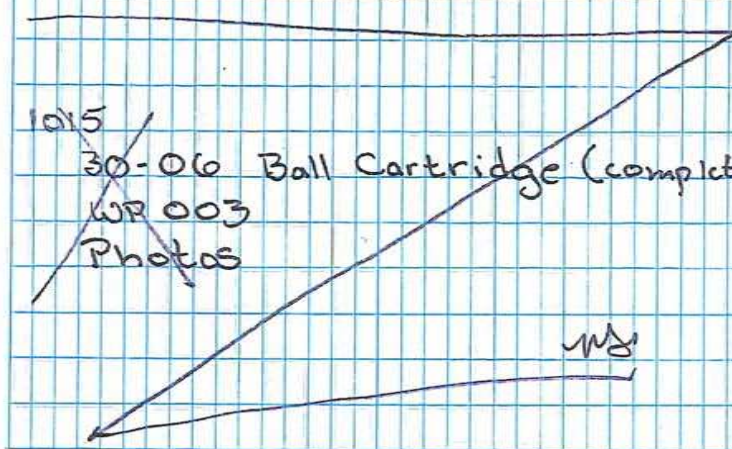 1015
30-06 Ball Cartridge (complet
WP 003
Photos